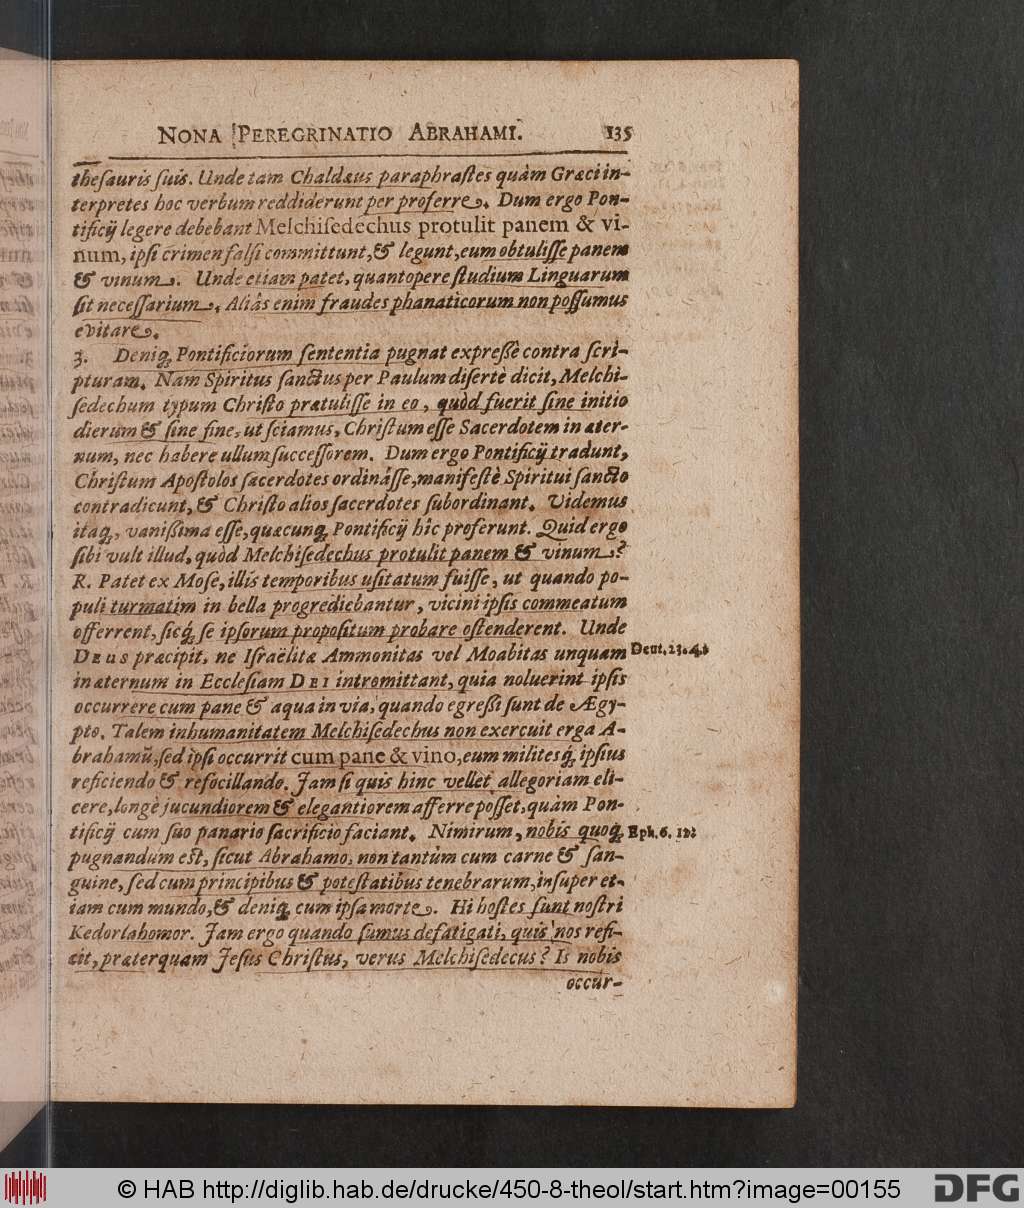 NONA PEREGRINATIO ABRAHAMI. 135
theſauris ſuis. Unde tam Chaldæus paraphraſtes quàm Græci in-
terpretes hoc verbum reddiderunt per proferre. Dum ergo Pon-
tificij legere debebant Melchiſedechus protulit panem & vi-
num, ipſi crimen falſi committunt, & legunt, eum obtuliſſe panem
& vinum. Unde etiam patet, quantopere ſtudium Linguarum
ſit neceſſarium. Aliàs enim fraudes phanaticorum non poſſumus
evitare.
3. Deniq; Pontificiorum ſententia pugnat expreßè contra ſcri-
pturam. Nam Spiritus ſanctus per Paulum diſertè dicit, Melchi-
ſedechum typum Chriſto prætuliſſe in eo, quòd fuerit ſine initio
dierum & ſine fine, ut ſciamus, Chriſtum eſſe Sacerdotem in æter-
num, nec habere ullum ſucceſſorem. Dum ergo Pontificij tradunt,
Chriſtum Apoſtolos ſacerdotes ordinâſſe, manifeſtè Spiritui ſancto
contradicunt, & Chriſto alios ſacerdotes ſubordinant. Videmus
itaq;, vanißima eſſe, quæcunq; Pontificij hîc proferunt. Quid ergo
ſibi vult illud, quòd Melchiſedechus protulit panem & vinum?
R. Patet ex Moſe, illis temporibus uſitatum fuiſſe, ut quando po-
puli turmatim in bella progrediebantur, vicini ipſis commeatum
offerrent, ſicq; ſe ipſorum propoſitum probare oſtenderent. Unde
DEUS præcipit, ne Iſraëlitæ Ammonitas vel Moabitas unquam
in æternum in Eccleſiam DEI intromittant, quia noluerint ipſis
occurrere cum pane & aqua in via, quando egreßi ſunt de Ægy-
pto. Talem inhumanitatem Melchiſedechus non exercuit erga A-
brahamũ, ſed ipſi occurrit cum pane & vino, eum militesq; ipſius
reficiendo & refocillando. Jam ſi quis hinc vellet allegoriam eli-
cere, longè jucundiorem & elegantiorem afferre poſſet, quàm Pon-
tificij cum ſuo panario ſacrificio faciant. Nimirum, nobis quoq;
pugnandum eſt, ſicut Abrahamo, non tantùm cum carne & ſan-
guine, ſed cum principibus & poteſtatibus tenebrarum, inſuper et-
iam cum mundo, & deniq; cum ipſa morte. Hi hoſtes ſunt noſtri
Kedorlahomor. Jam ergo quando ſumus defatigati, quis nos refi-
cit, præterquam Jeſus Chriſtus, verus Melchiſedecus? Is nobis
occur-
Deut. 23. 4.
Eph. 6. 12.
© HAB http://diglib.hab.de/drucke/450-8-theol/start.htm?image=00155
DFG